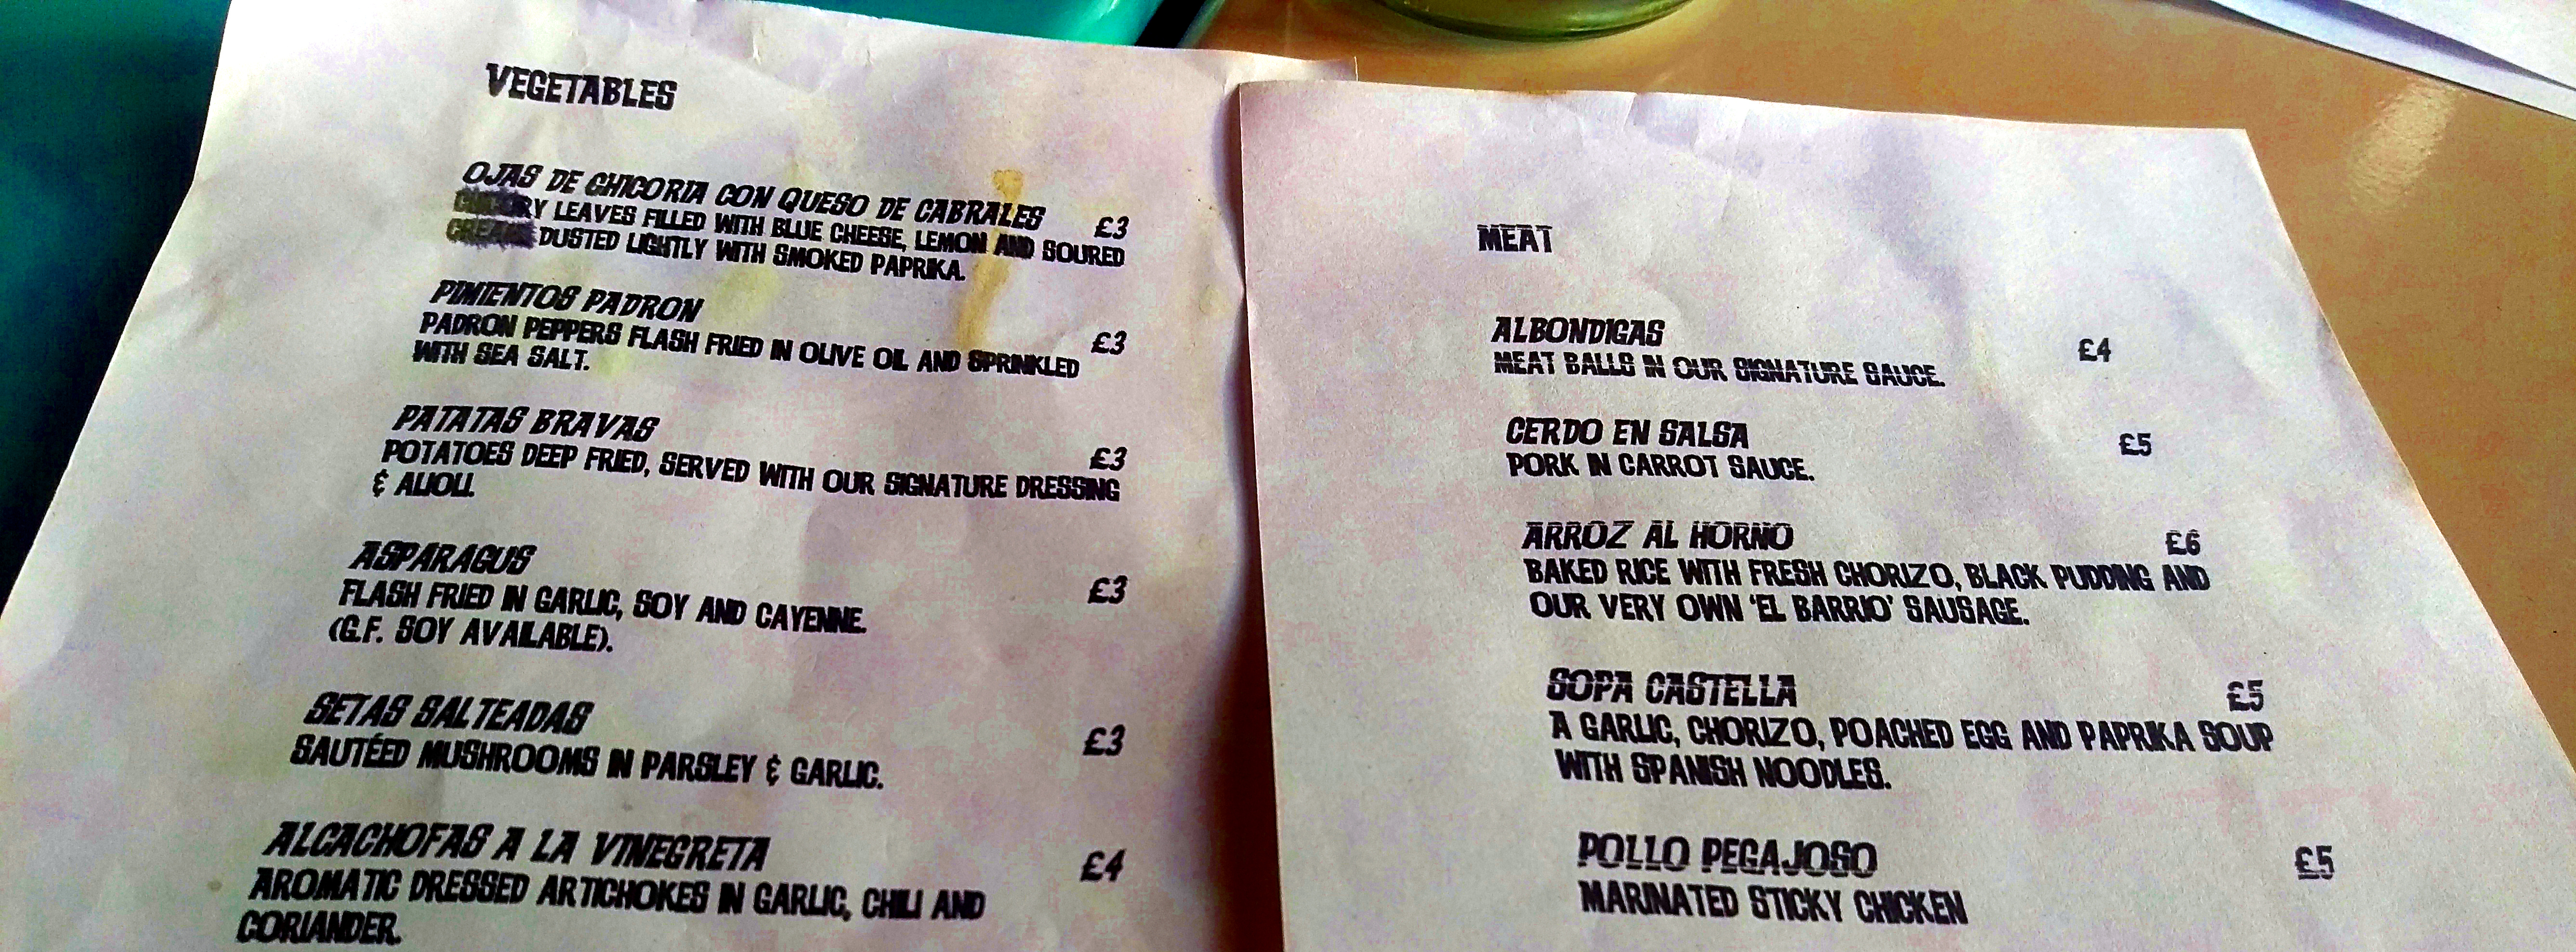 VEGETABLES
OJAS DE CHICORIA CON QUESO DE CABRALES £3
CHICORY LEAVES FILLED WITH BLUE CHEESE, LEMON AND SOURED
CREAM. DUSTED LIGHTLY WITH SMOKED PAPRIKA.
PIMIENTOS PADRON £3
PADRON PEPPERS FLASH FRIED IN OLIVE OIL AND SPRINKLED
WITH SEA SALT.
PATATAS BRAVAS £3
POTATOES DEEP FRIED, SERVED WITH OUR SIGNATURE DRESSING
& ALIOLI.
ASPARAGUS £3
FLASH FRIED IN GARLIC, SOY AND CAYENNE.
(G.F. SOY AVAILABLE).
SETAS SALTEADAS £3
SAUTÉED MUSHROOMS IN PARSLEY & GARLIC.
ALCACHOFAS A LA VINEGRETA £4
AROMATIC DRESSED ARTICHOKES IN GARLIC, CHILI AND
CORIANDER.
MEAT
ALBONDIGAS £4
MEAT BALLS IN OUR SIGNATURE SAUCE.
CERDO EN SALSA £5
PORK IN CARROT SAUCE.
ARROZ AL HORNO £6
BAKED RICE WITH FRESH CHORIZO, BLACK PUDDING AND
OUR VERY OWN 'EL BARRIO' SAUSAGE.
SOPA CASTELLA £5
A GARLIC, CHORIZO, POACHED EGG AND PAPRIKA SOUP
WITH SPANISH NOODLES.
POLLO PEGAJOSO £5
MARINATED STICKY CHICKEN